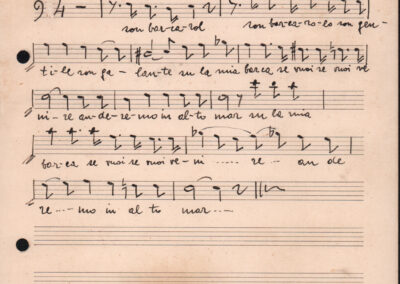 son bar-ca-rol son bar-ca-ro-lo son gen-
ti-le son ga-lan-te su la mia barca se vuoi se vuoi ve
ni-re an-de-re-mo in al-to mar su la mia
bar-ca se vuoi se vuoi ve-ni ..... re ... an de
re ..... mo in al to mar .....